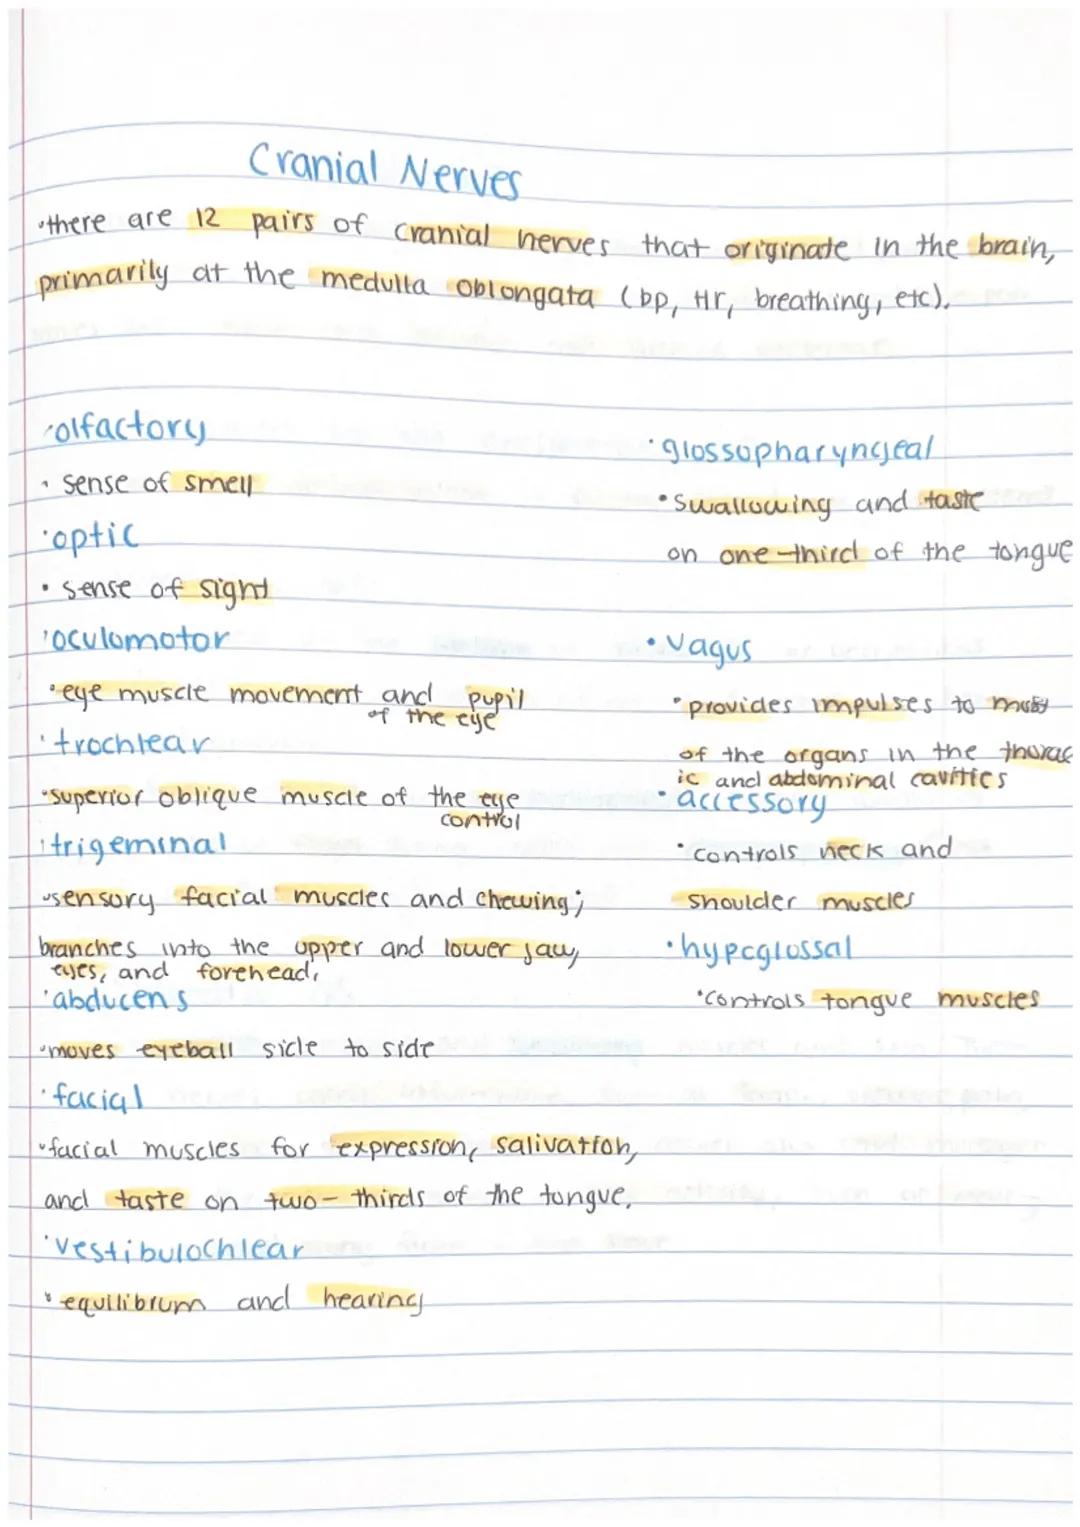 Cranial Nerves
·there are 12 pairs of cranial nerves that originate in the brain,
primarily at the medulla oblongata (bp, Hr, breathing, etc).
·olfactory
· sense of smell
·optic
· sense of sight
·oculomotor
·eye muscle movement and pupil
of the eye
·trochlear
·superior oblique muscle of the eye
control
·trigeminal
·sensory facial muscles and chewing;
branches into the upper and lower jaw,
eyes, and forehead,
·abducens
·moves eyeball side to side
·facial
·facial muscles for expression, salivation,
and taste on two-thirds of the tongue.
·Vestibulochlear
· equilibrum and hearing
·glossopharyngeal
·Swallowing and taste
on one-third of the tongue
·Vagus
·provides impulses to most
of the organs in the thorac
ic and abdominal cavities
·accessory
·controls neck and
shoulder muscles
·hypoglossal
·controls tongue muscles